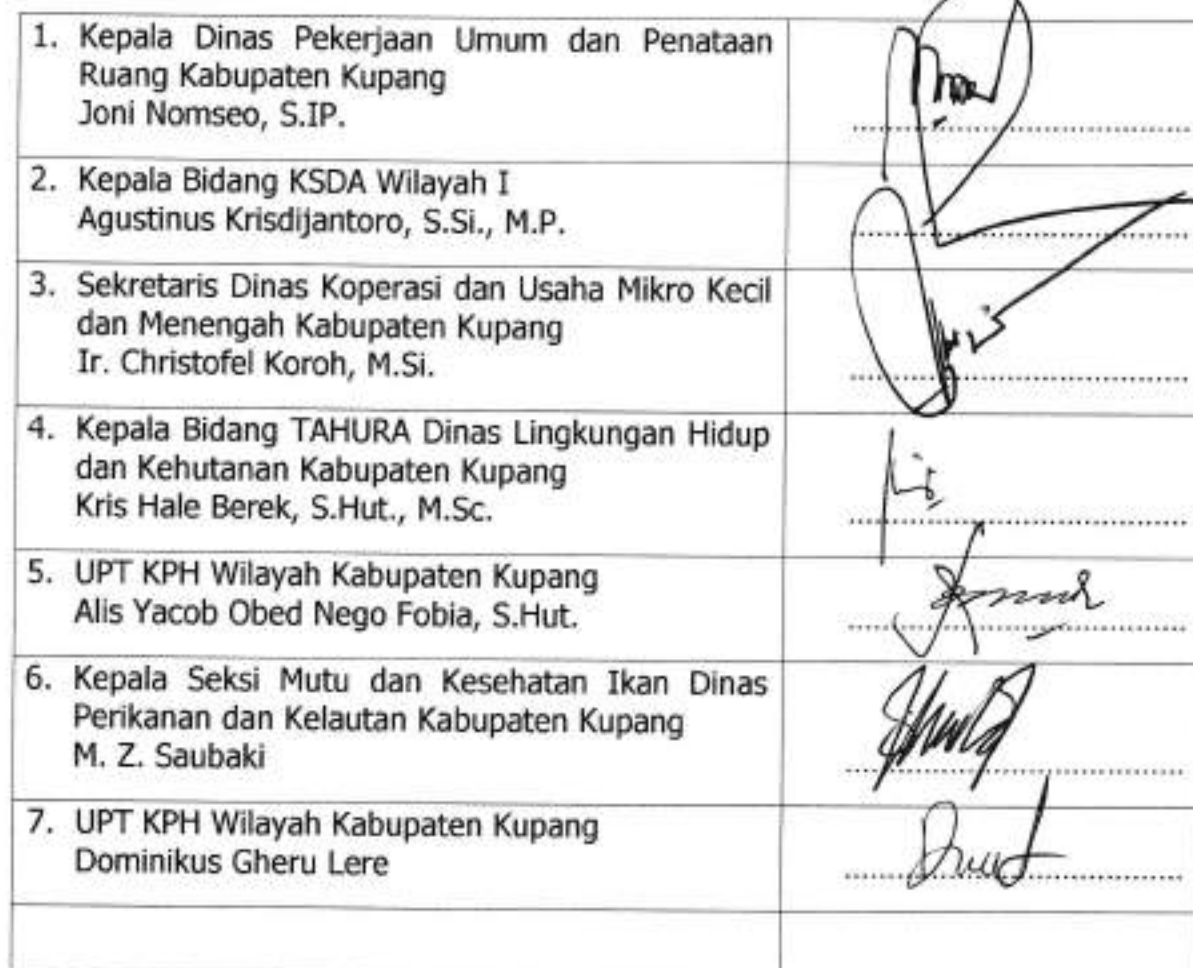 1. Kepala Dinas Pekerjaan Umum dan Penataan
Ruang Kabupaten Kupang
Joni Nomseo, S.IP.
2. Kepala Bidang KSDA Wilayah I
Agustinus Krisdijantoro, S.Si., M.P.
3. Sekretaris Dinas Koperasi dan Usaha Mikro Kecil
dan Menengah Kabupaten Kupang
Ir. Christofel Koroh, M.Si.
4. Kepala Bidang TAHURA Dinas Lingkungan Hidup
dan Kehutanan Kabupaten Kupang
Kris Hale Berek, S.Hut., M.Sc.
5. UPT KPH Wilayah Kabupaten Kupang
Alis Yacob Obed Nego Fobia, S.Hut.
6. Kepala Seksi Mutu dan Kesehatan Ikan Dinas
Perikanan dan Kelautan Kabupaten Kupang
M. Z. Saubaki
7. UPT KPH Wilayah Kabupaten Kupang
Dominikus Gheru Lere